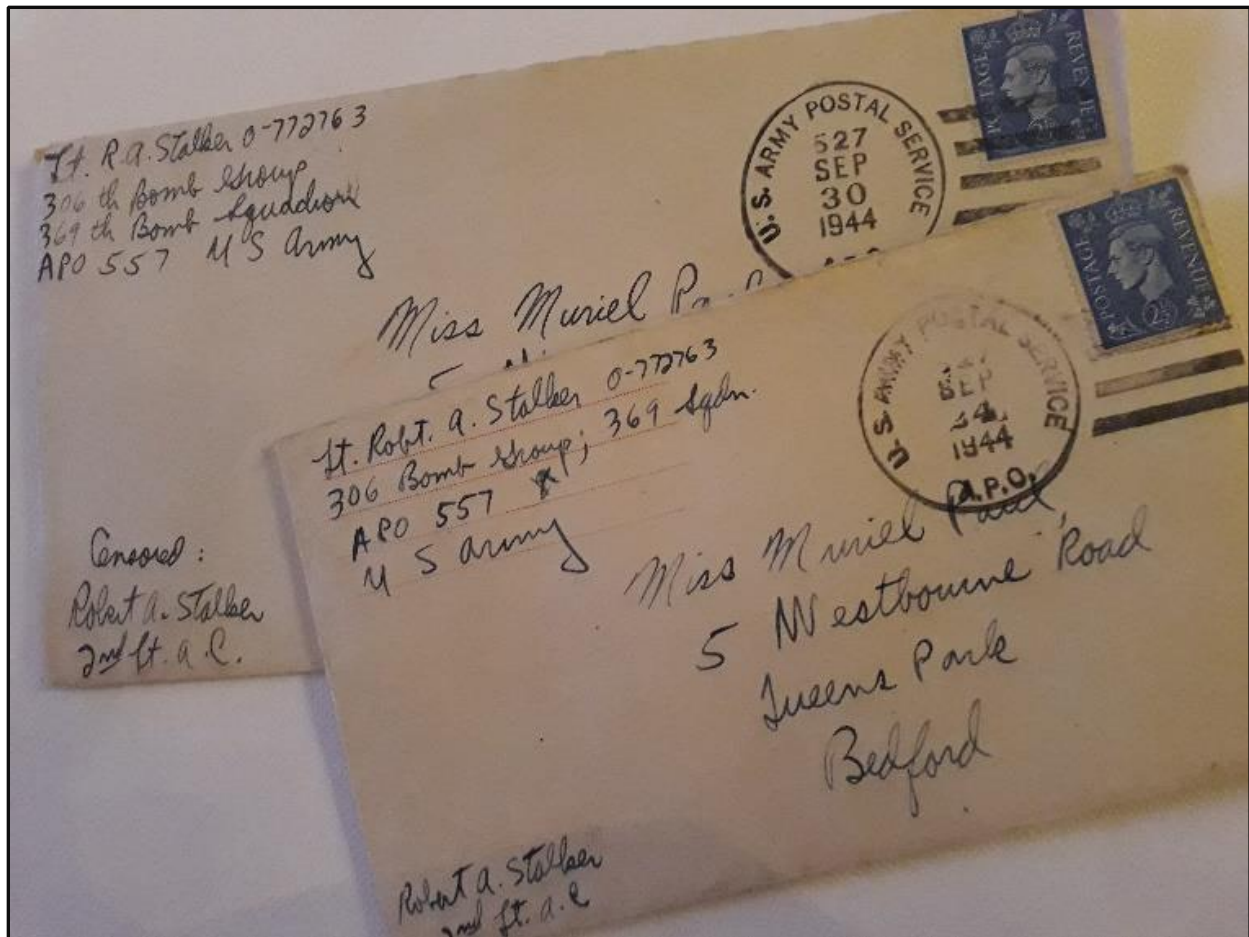 Lt. R.A. Stalker 0-772763
306 th Bomb Group
369 th Bomb Squadron
APO 557 U S Army
U.S. ARMY POSTAL SERVICE
527
SEP
30
1944
POSTAGE REVENUE
Miss Muriel
5
Censored:
Robert A. Stalker
2nd Lt. A.C.
Lt. Robt. A. Stalker 0-772763
306 Bomb Group; 369 Sqdn.
APO 557
U S Army
U.S. ARMY POSTAL SERVICE
SEP
1944
A.P.O.
POSTAGE REVENUE
2½
Miss Muriel Paul,
5 Westbourne Road
Queens Park
Bedford
Robert A. Stalker
2nd Lt. A.C